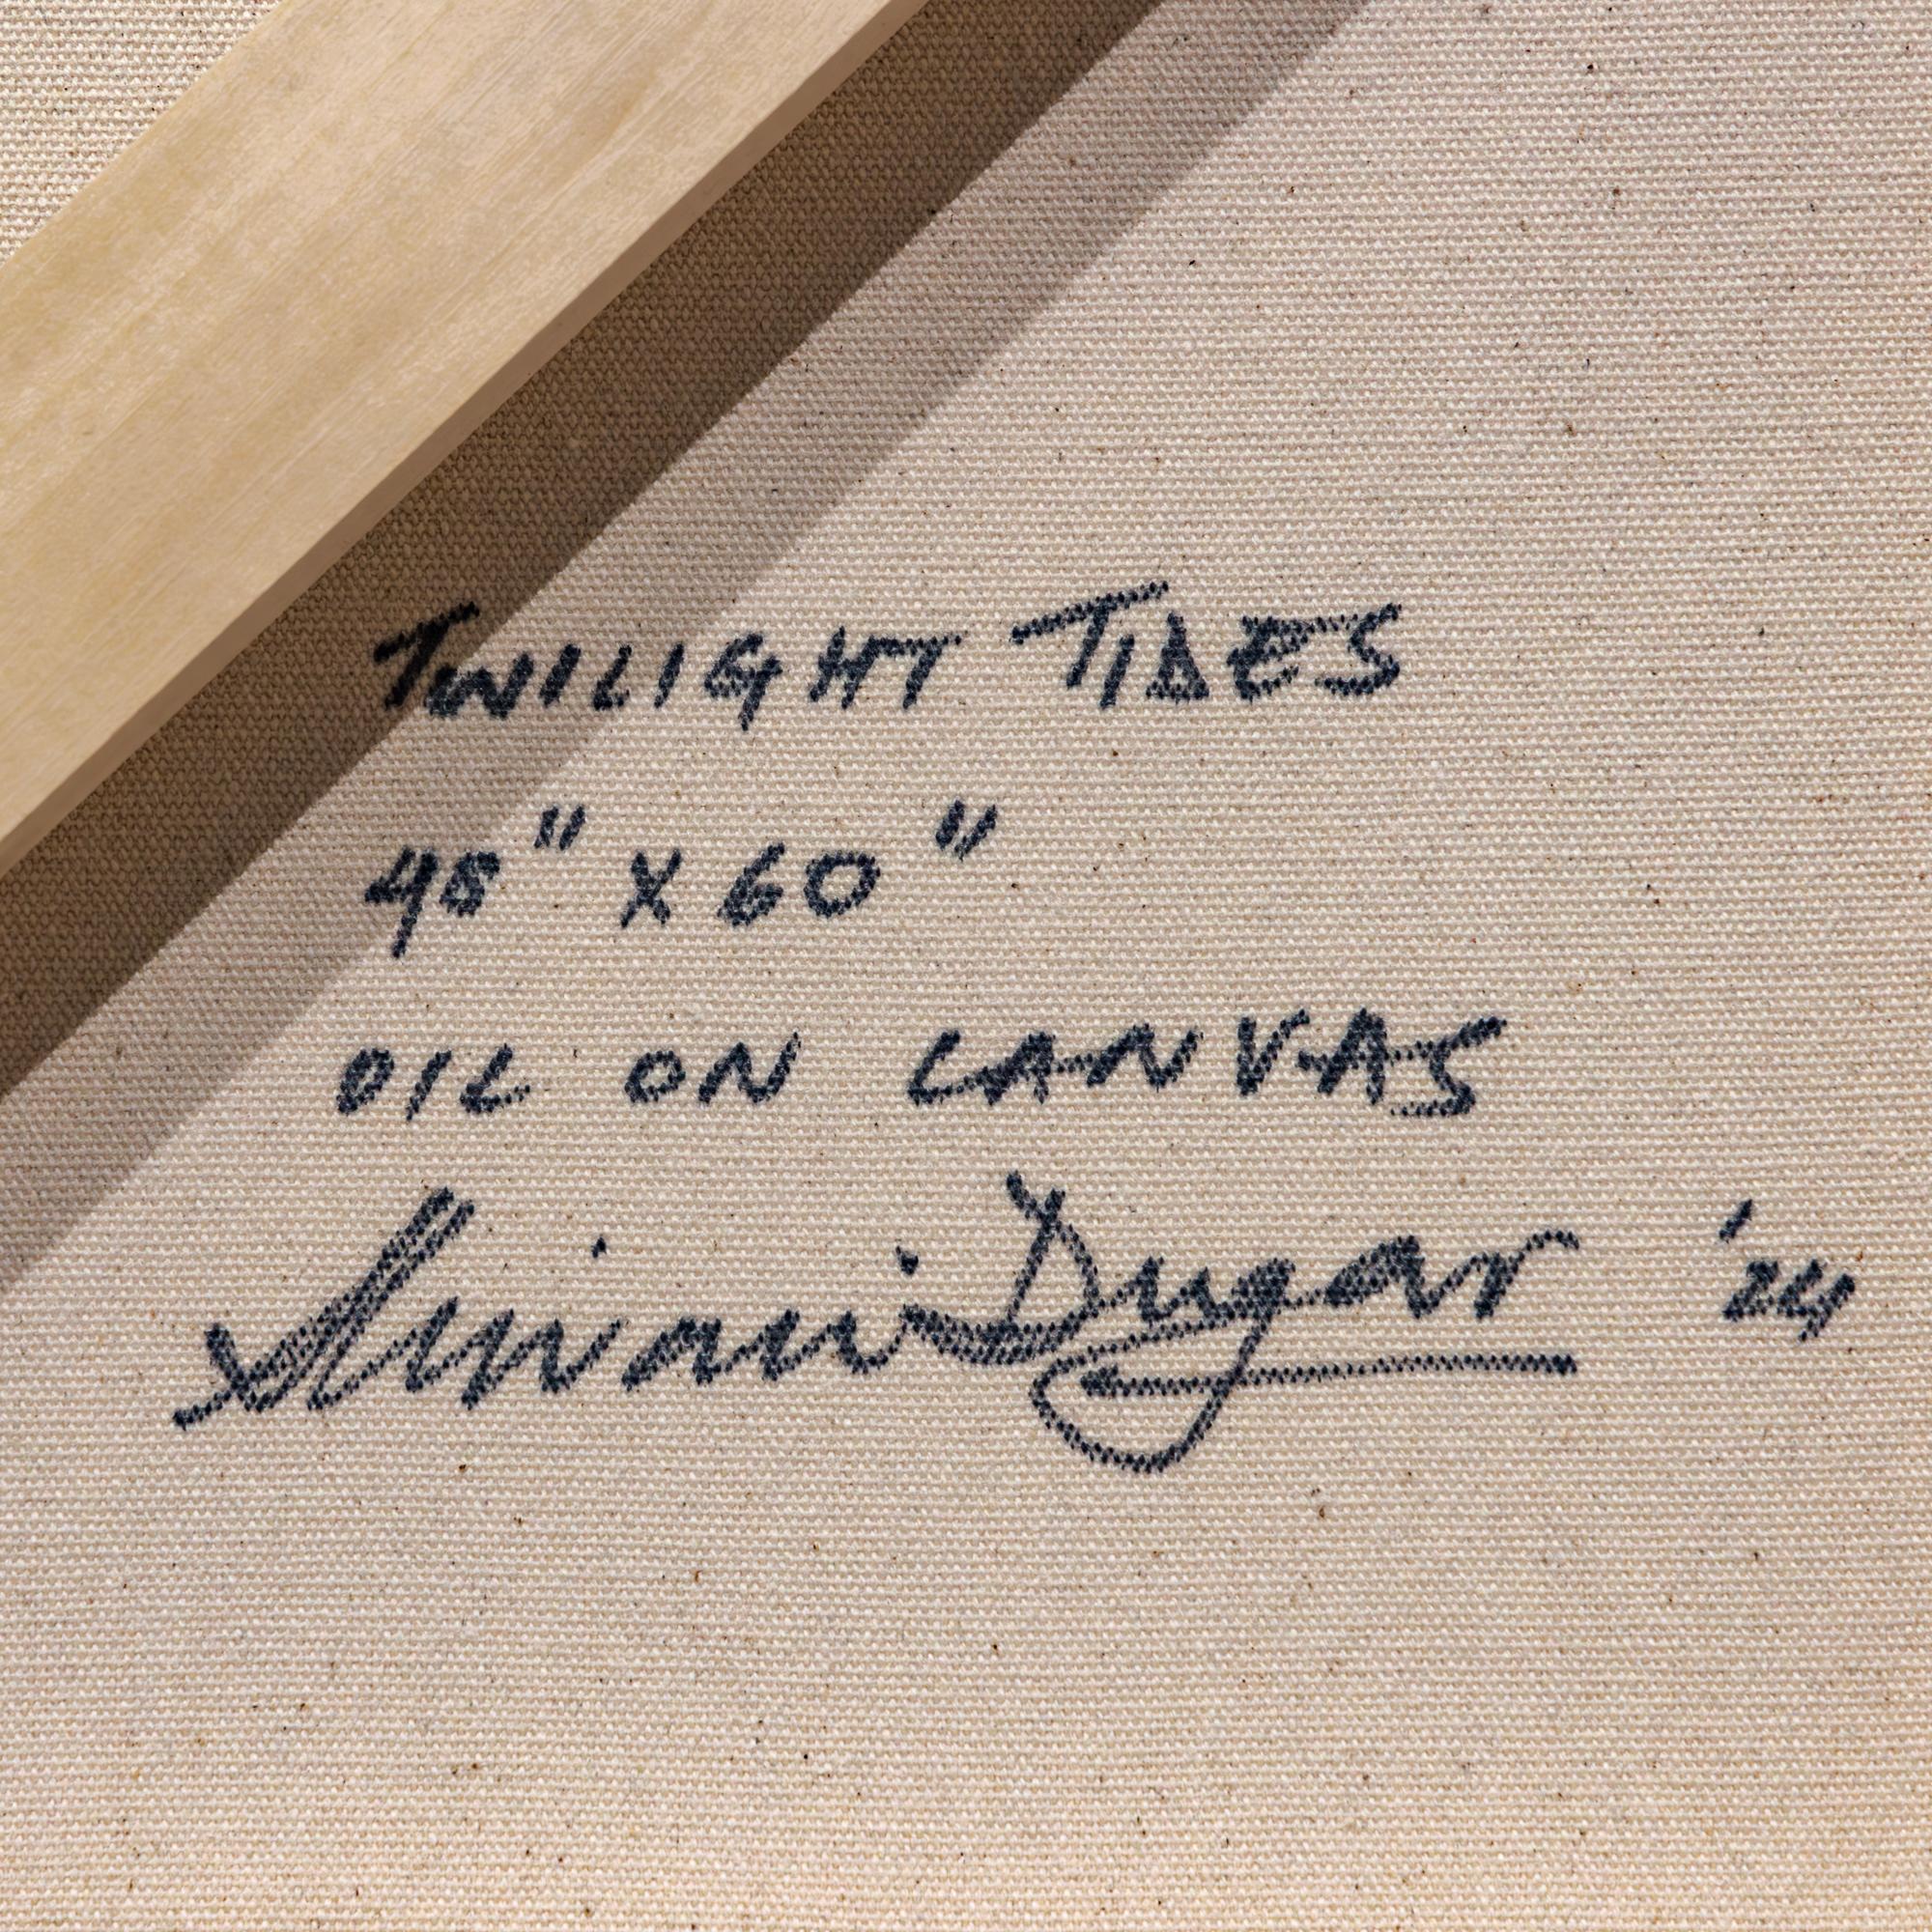 TWILIGHT TIDES
48" X 60"
OIL ON CANVAS
Shivani Dugar '24